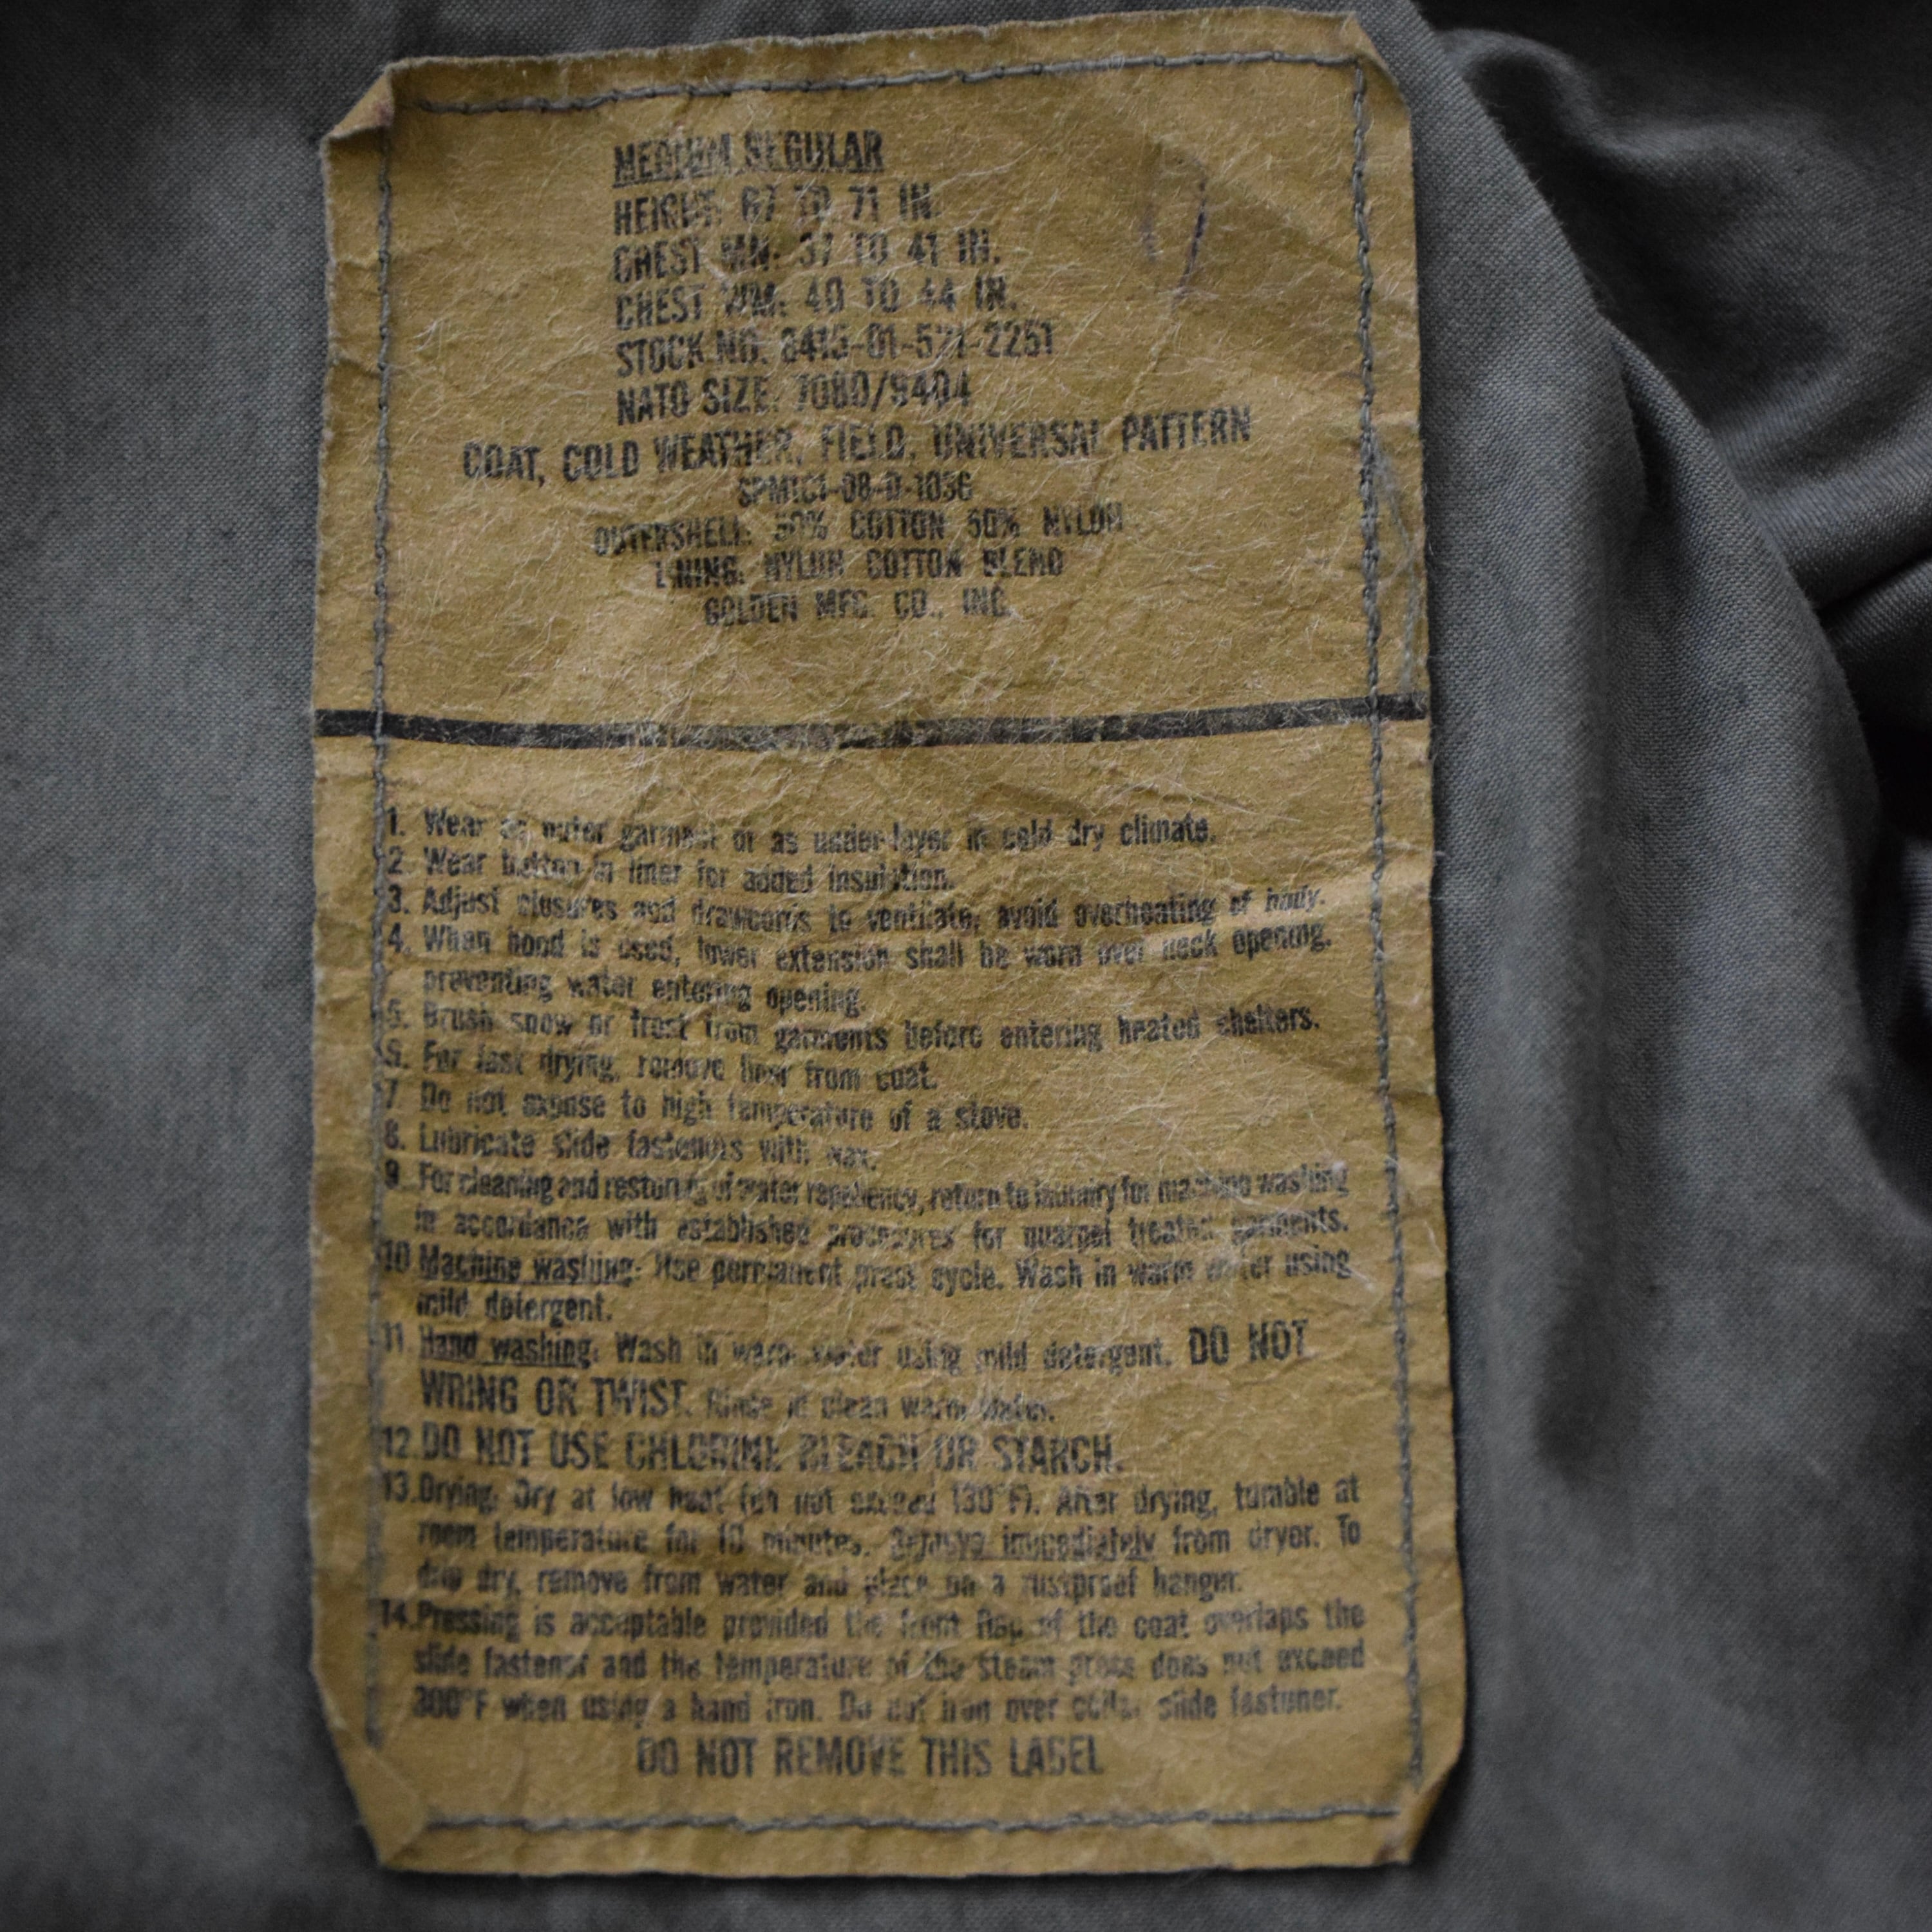 MEDIUM REGULAR
HEIGHT: 67 TO 71 IN.
CHEST MN: 37 TO 41 IN.
CHEST WM: 40 TO 44 IN.
STOCK NO. 8415-01-521-2251
NATO SIZE: 7080/9404
COAT, COLD WEATHER, FIELD, UNIVERSAL PATTERN
SPM1C1-08-D-1036
OUTERSHELL: 50% COTTON 50% NYLON
LINING: NYLON COTTON BLEND
GOLDEN MFG. CO., INC.
1. Wear as outer garment or as under-layer in cold dry climate.
2. Wear button-in liner for added insulation.
3. Adjust closures and drawcords to ventilate, avoid overheating of body.
4. When hood is used, lower extension shall be worn over neck opening.
preventing water entering opening.
5. Brush snow or frost from garments before entering heated shelters.
6. For fast drying, remove liner from coat.
7 Do not expose to high temperature of a stove.
8. Lubricate slide fasteners with wax.
9. For cleaning and restoring of water repellency, return to laundry for machine washing
in accordance with established procedures for quarpel treated garments.
10 Machine washing: Use permanent press cycle. Wash in warm water using
mild detergent.
11. Hand washing: Wash in warm water using mild detergent. DO NOT
WRING OR TWIST. Rinse in clean warm water.
12. DO NOT USE CHLORINE BLEACH OR STARCH.
13. Drying: Dry at low heat (do not exceed 130°F). After drying, tumble at
room temperature for 10 minutes. Remove immediately from dryer. To
drip dry, remove from water and place on a rustproof hanger.
14. Pressing is acceptable provided the front flap of the coat overlaps the
slide fastener and the temperature of the steam press does not exceed
300°F when using a hand iron. Do not iron over collar slide fastener.
DO NOT REMOVE THIS LABEL